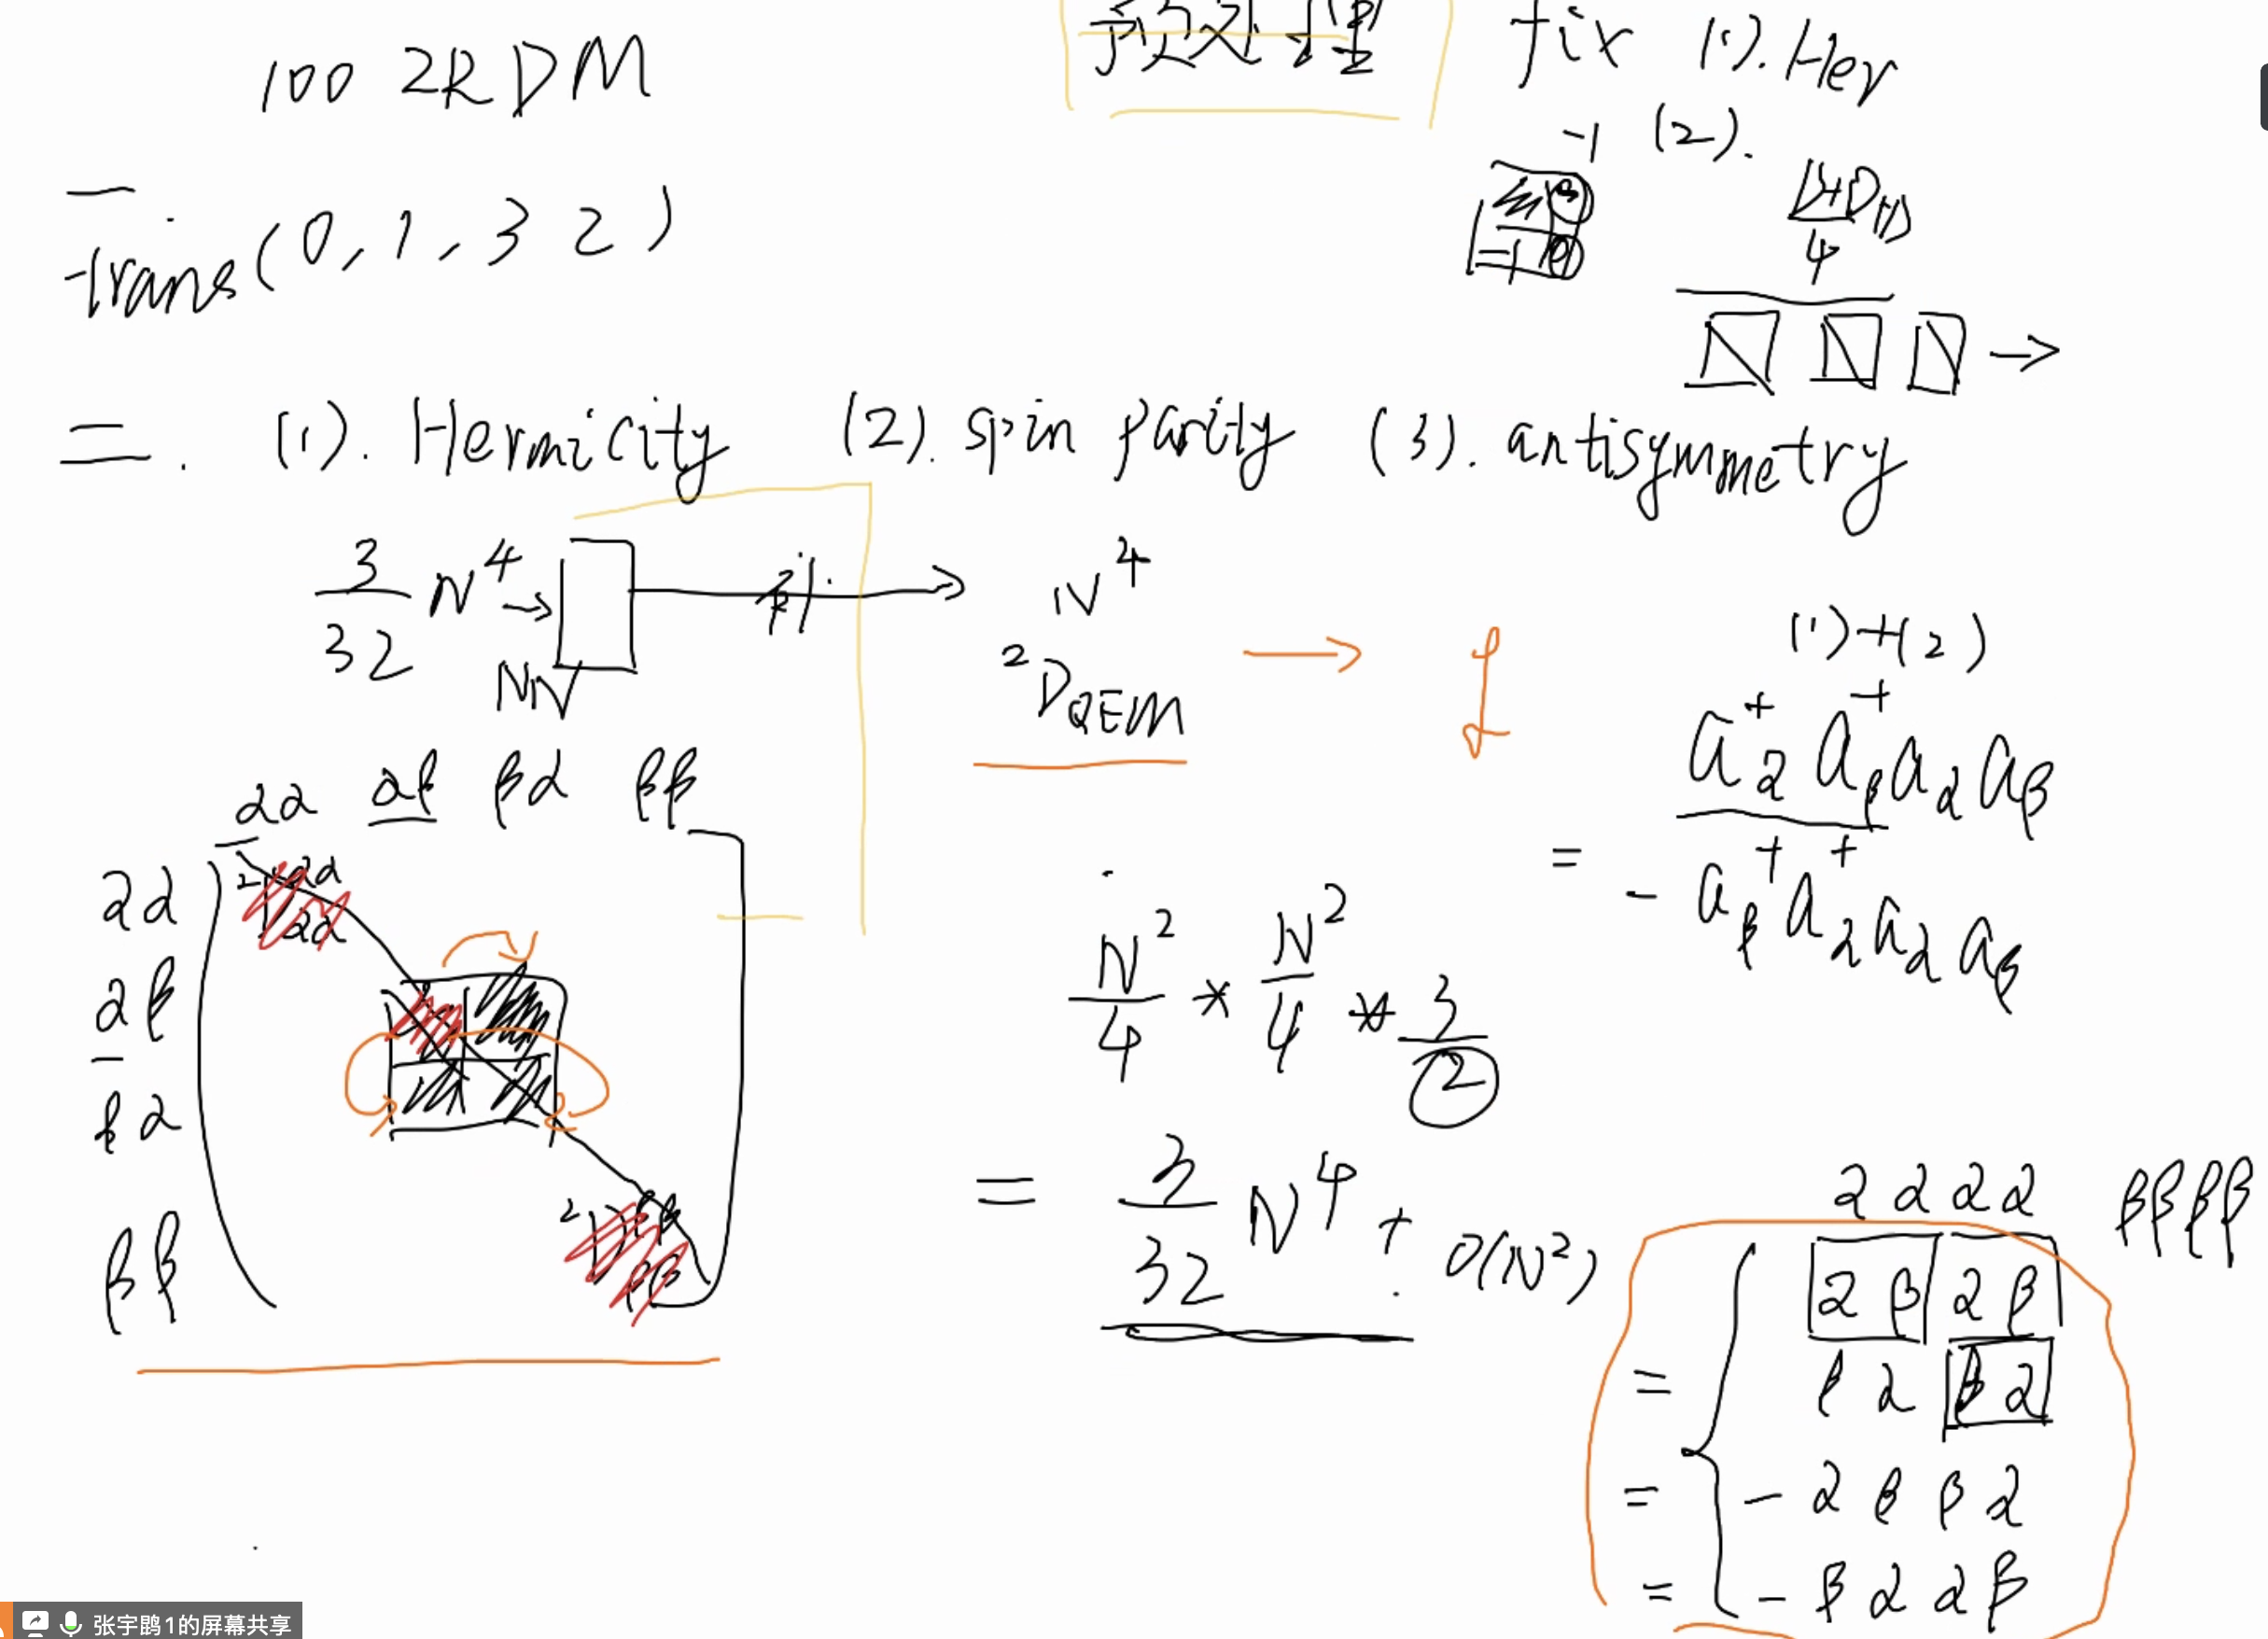 100 2RDM
预处理
fix (1). Her
-1 (2).
4
一
trans(0, 1, 3 2)
-1
二. (1). Hermicity (2). spin parity (3). antisymmetry
3/32 N⁴ → NN → N⁴
²D_QEM → f
(1)+(2)
a⁺_α a⁺_β a_α a_β
= - a⁺_β a⁺_α a_α a_β
αα αβ βα ββ
αα
αβ
βα
ββ
N²/4 * N²/4 * 3/2
= 3/32 N⁴ + O(N²)
αααα ββββ
αβαβ
= βαβα
= - αββα
= - βααβ
张宇鹍1的屏幕共享